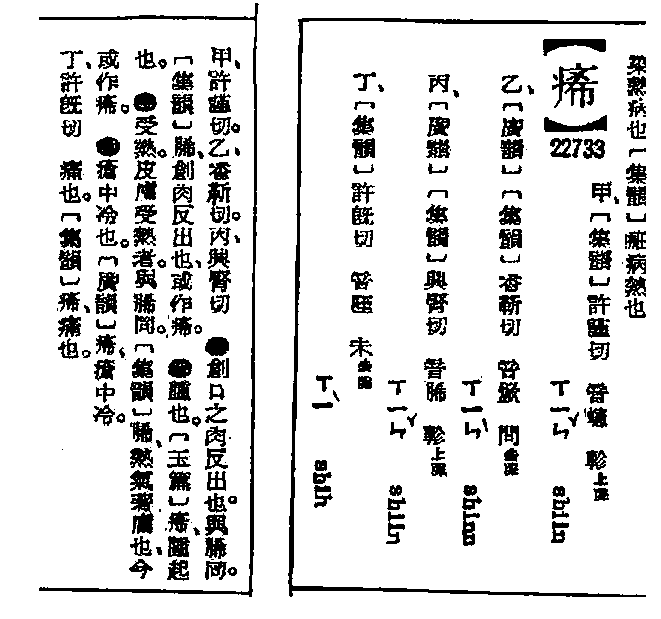 染熱病也〔集韻〕病熱也
【㾙】
22733
甲、〔集韻〕許謹切 音 軫上聲
ㄒㄧㄣˇ shiin
乙、〔廣韻〕〔集韻〕香靳切 音焮 問去聲
ㄒㄧㄣˋ shinn
丙、〔廣韻〕〔集韻〕興腎切 音脪 軫上聲
ㄒㄧㄣˇ shiin
丁、〔集韻〕許旣切 音 未去聲
ㄒㄧˋ shih
甲、許謹切。乙、香靳切。丙、興腎切 ●創口之肉反出也。與脪同。
〔集韻〕脪、創肉反出也、或作㾙。 ●腫也。〔玉篇〕㾙、腫起
也。 ●受熱皮膚受熱者。與脪同。〔集韻〕脪、熱氣著膚也、今
或作㾙。 ●瘡中冷也。〔廣韻〕㾙、瘡中冷。
丁、許旣切 痛也。〔集韻〕㾙、痛也。